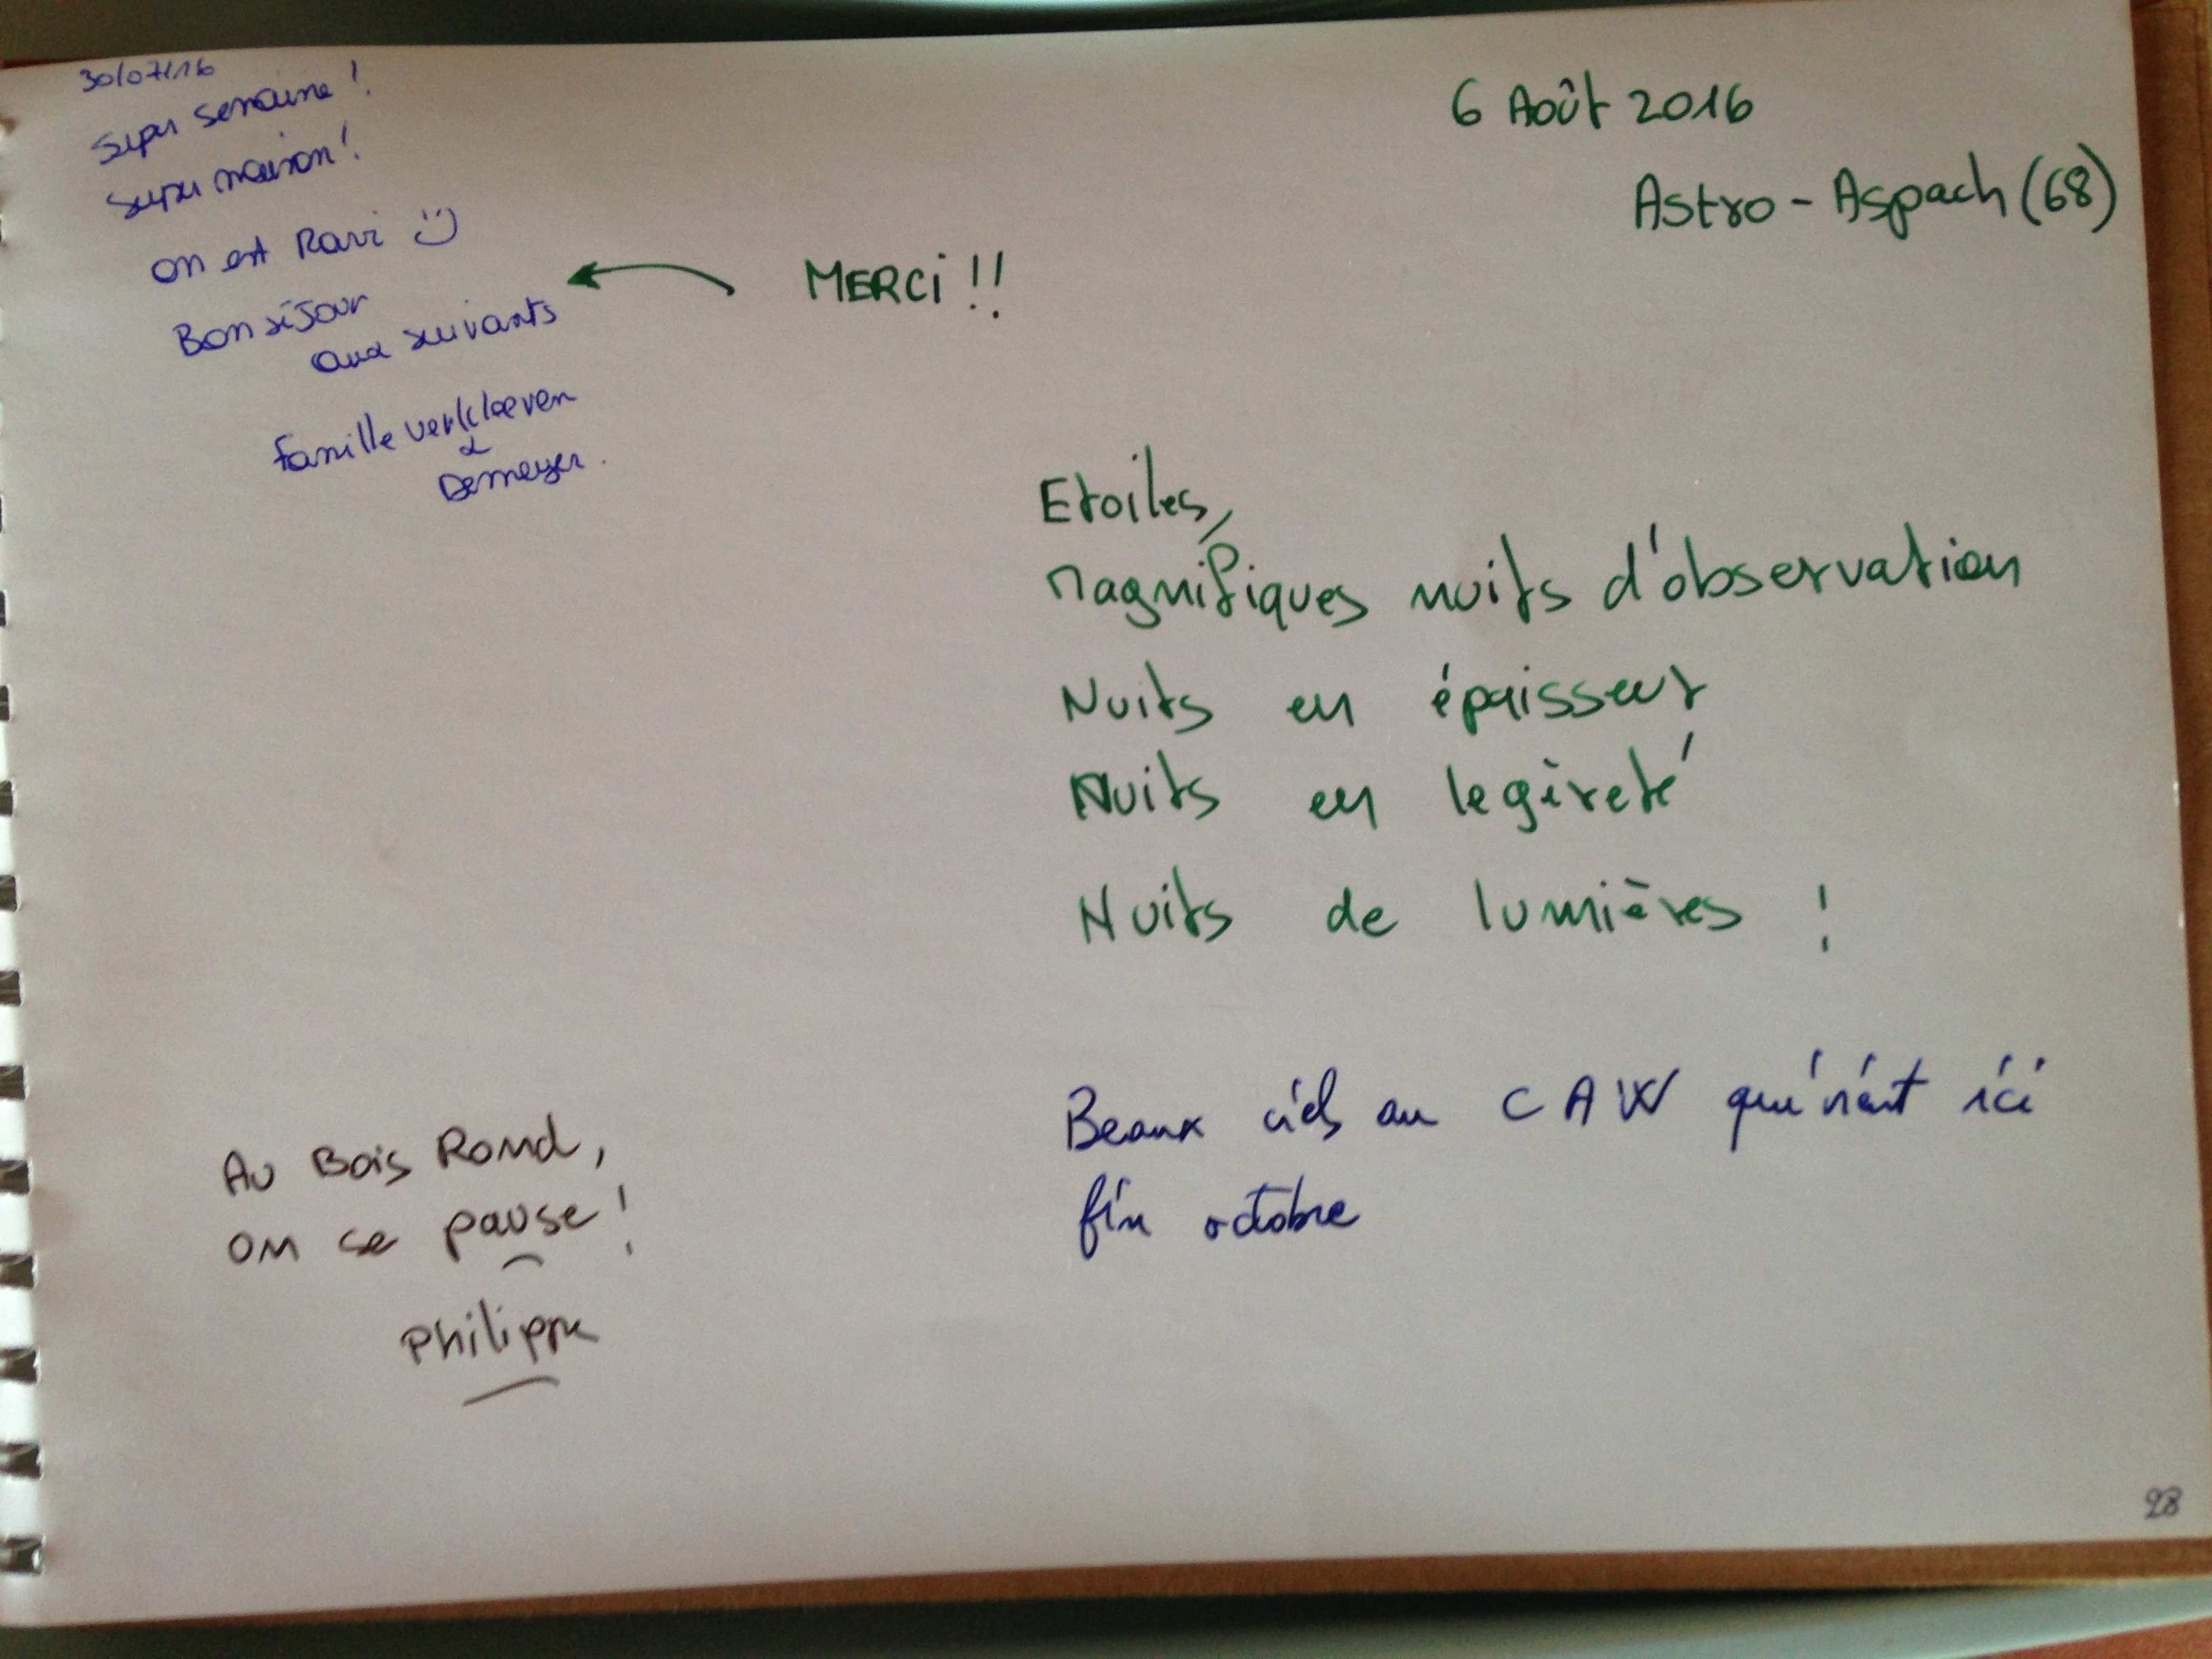 30/07/16
Super semaine !
Super maison !
on est Ravi :)
Bon séjour
aux suivants
Famille Verkleeven
&
Demeyer.
MERCi !!
6 Août 2016
Astro - Aspach (68)
Etoiles,
Magnifiques nuits d'observation
Nuits en épaisseur
Nuits en legèreté
Nuits de lumières !
Beaux ciels au CAW qui vient ici
fin octobre
Au Bois Rond,
on se pause !
Philippe
28